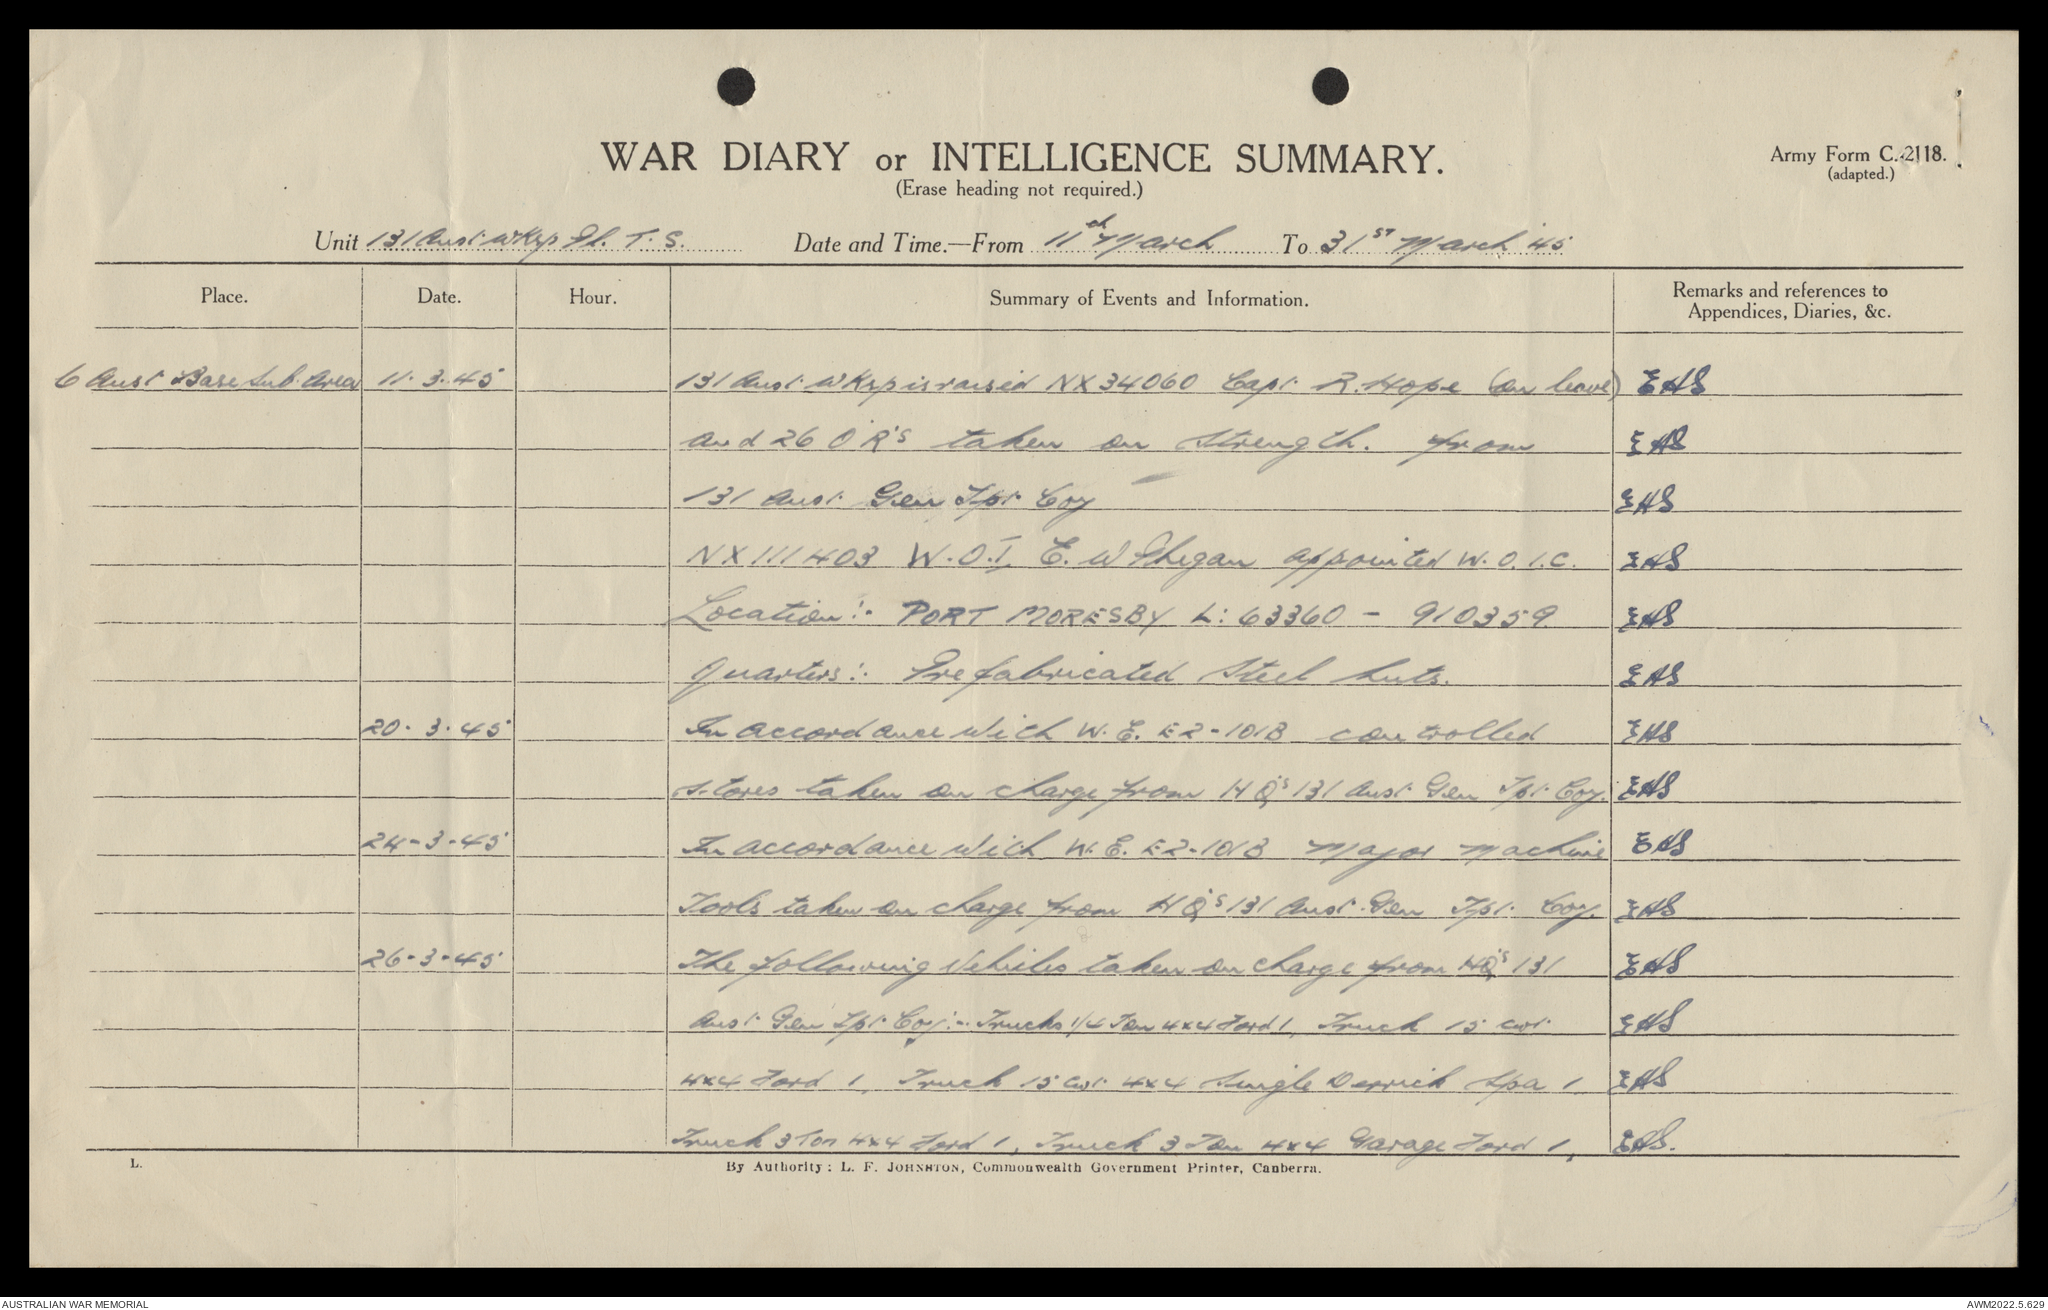 WAR DIARY or INTELLIGENCE SUMMARY.
(Erase heading not required.)
Army Form C.2118.
(adapted.)
Unit 131 Aust WKsp Pl. T. S. Date and Time.—From 11th March To 31ST March '45
Place. Date. Hour. Summary of Events and Information. Remarks and references to Appendices, Diaries, &c.
6 Aust Base Sub. Area 11.3.45 131 Aust. WKsp is raised NX34060 Capt. R. Hope (on leave) EAS
and 26 O R's taken on strength. from EAS
131 Aust. Gen Tpt. Coy EAS
NX111403 W.O.I. E. W appointed W.O.I.C. EAS
Location:- PORT MORESBY L: 63360 - 910359 EAS
Quarters:- Prefabricated Steel huts. EAS
20.3.45 In accordance with W.E. E2-101B controlled EAS
stores taken on charge from HQ's 131 Aust. Gen Tpt. Coy. EAS
24-3-45 In accordance with W.E. E2-101B Major Machine EAS
Tools taken on charge from HQ's 131 Aust. Gen Tpt. Coy. EAS
26-3-45 The following Vehicles taken on charge from HQ's 131 EAS
Aust. Gen Tpt. Coy:- Trucks 1/4 Ton 4x4 Ford 1, Truck 15 cwt. EAS
4x4 Ford 1, Truck 15 cwt. 4x4 Single Derrick Spa 1, EAS
Truck 3 Ton 4x4 Ford 1, Truck 3 Ton 4x4 Garage Ford 1, EAS.
L.
By Authority: L. F. JOHNSTON, Commonwealth Government Printer, Canberra.
AUSTRALIAN WAR MEMORIAL
AWM2022.5.629